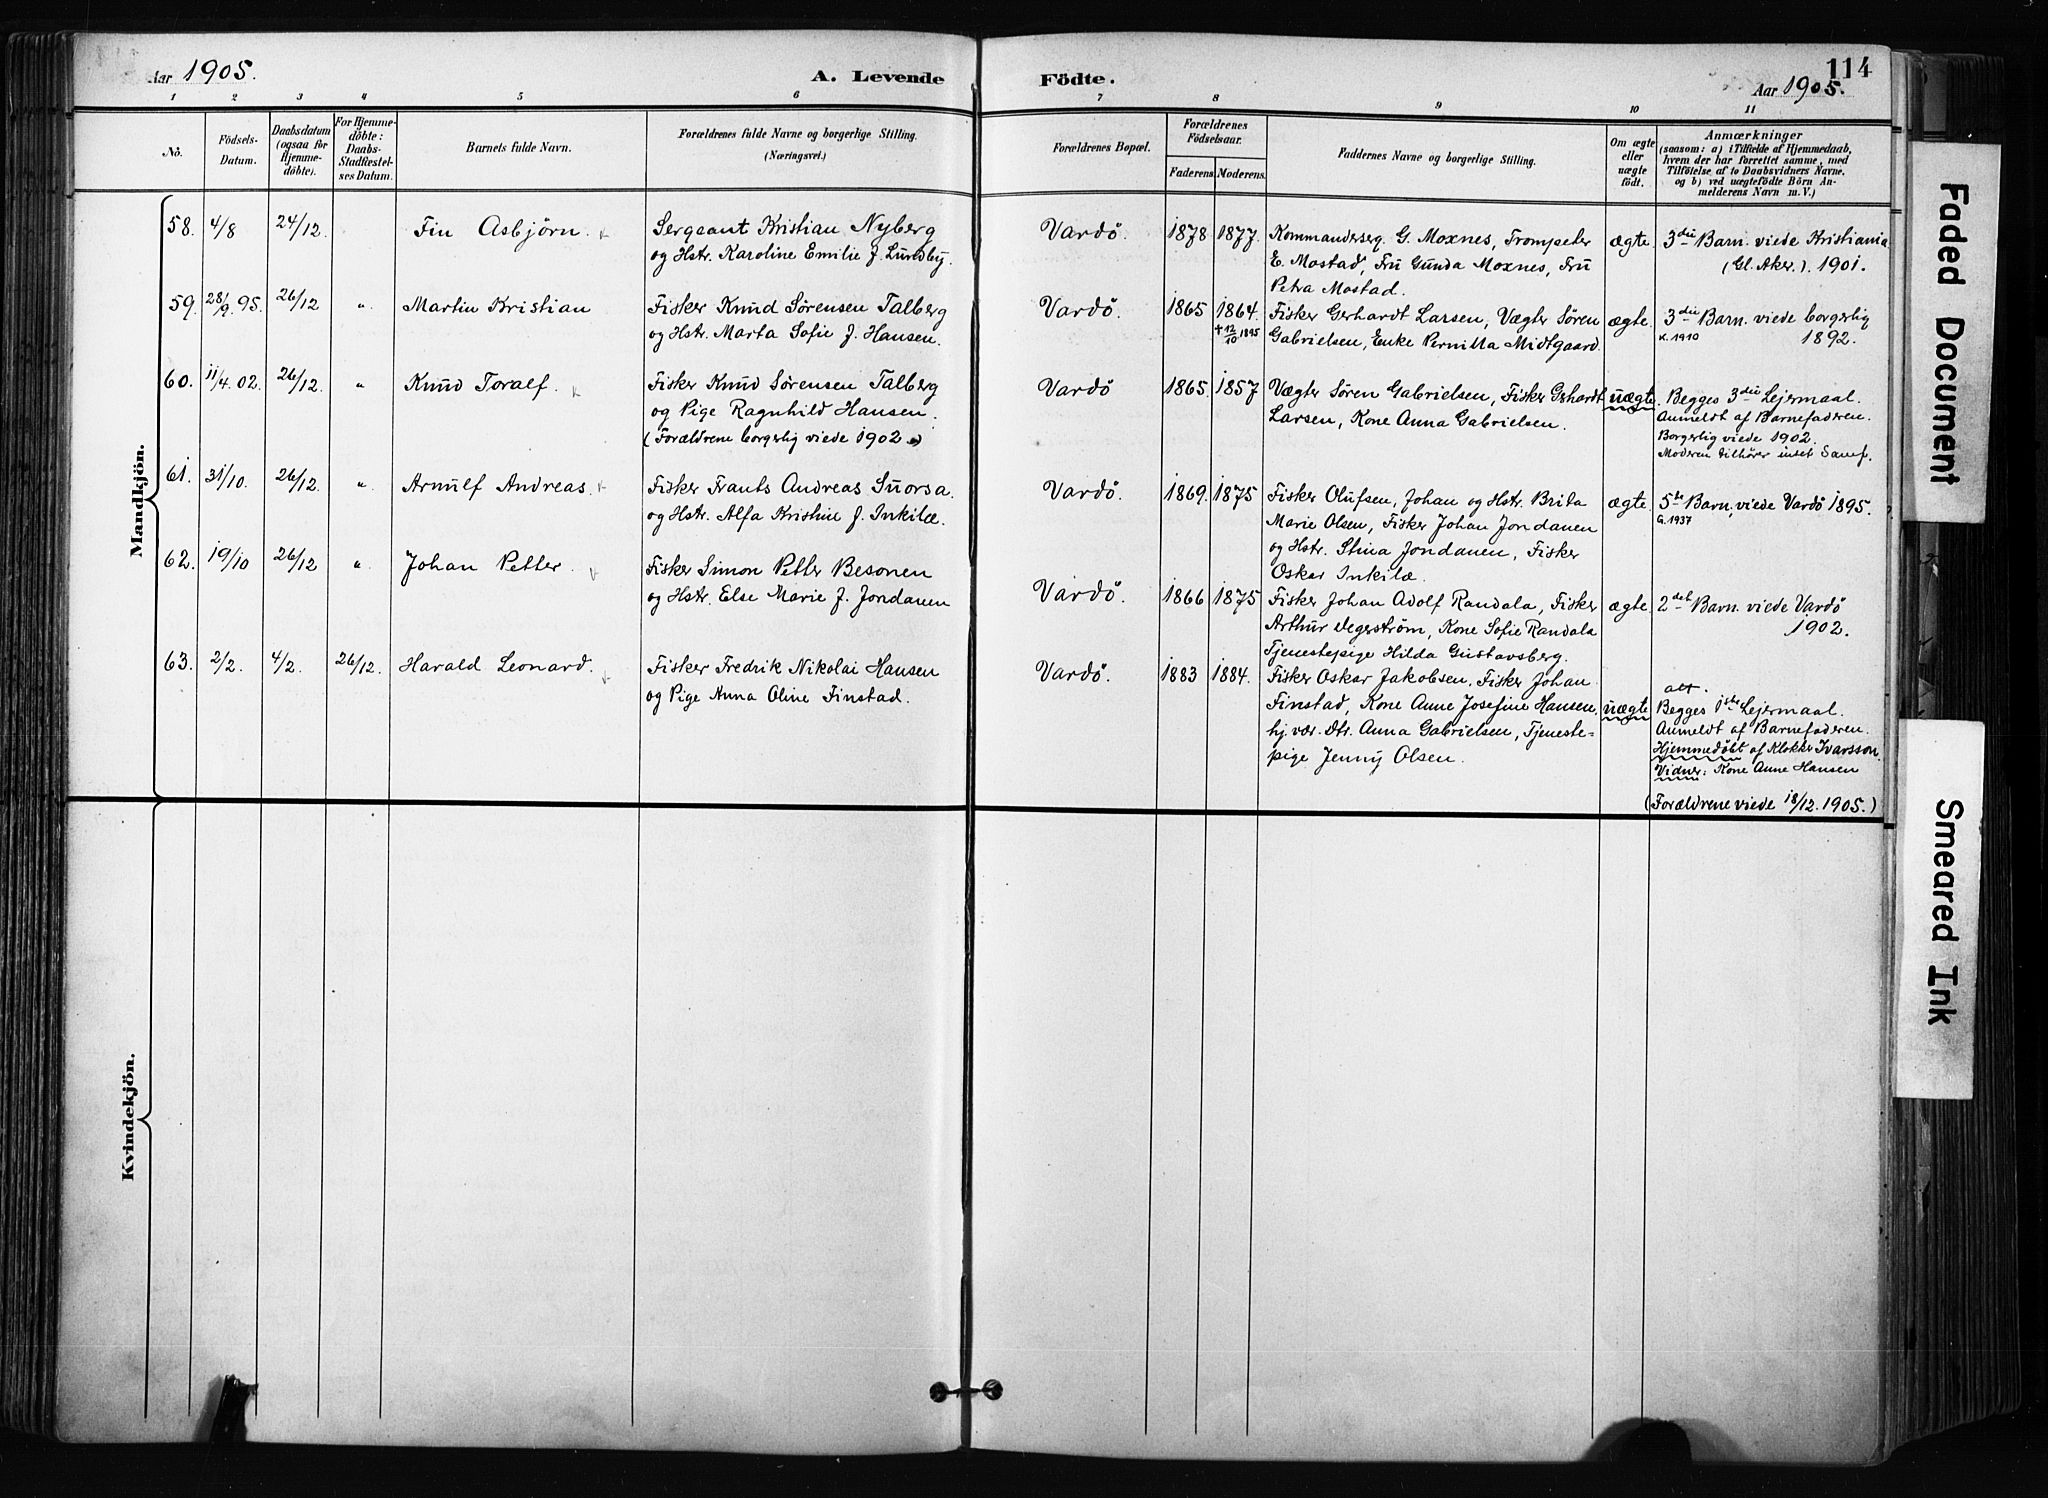 Aar 1905.
A. Levende
Födte.
114
Aar 1905.
1 2 3 4 5 6 7 8 9 10 11
No.
Födsels-Datum.
Daabsdatum (ogsaa for Hjemmedöbte).
For Hjemmedöbte: Daabs-Stadfæstelses Datum.
Barnets fulde Navn.
Forældrenes fulde Navne og borgerlige Stilling. (Næringsvei.)
Forældrenes Bopæl.
Forældrenes Födselsaar.
Faderens. Moderens.
Faddernes Navne og borgerlige Stilling.
Om ægte eller uægte födt.
Anmærkninger
(saasom: a) i Tilfælde af Hjemmedaab,
hvem der har forrettet samme, med
Tilföielse af to Daabsvidners Navne,
og b) ved uægtefödte Börn An-
melderens Navn m. V.)
Mandkjön.
58. 4/8 24/12. Fin Asbjörn
Sergeant Kristian Nyberg
og Hstr. Karoline Emilie f. Lundby.
Vardö. 1878 1877.
Kommanderserg. G. Moxnes, Trompeter
E. Mostad, Fru Gunda Moxnes, Fru
Petra Mostad.
ægte
3die Barn. viede Kristiania
(Gl. Aker.). 1901.
59. 28/9. 95. 26/12 " Martin Kristian
Fisker Knud Sørensen Talberg
og Hstr. Marta Sofie f. Hansen.
Vardö 1865 1864.
+ 12/10 1895
Fisker Gerhardt Larsen, Vægter Sören
Gabrielsen, Enke Pernilla Midtgaard.
ægte.
3die Barn. viede borgerlig
K. 1910 1892.
60. 11/4. 02. 26/12. " Knud Toralf.
Fisker Knud Sørensen Talberg
og Pige Ragnhild Hansen.
(Forældrene borgerlig viede 1902.)
Vardö 1865. 1857
Vægter Sören Gabrielsen, Fisker Gerhardt
Larsen, Kone Anna Gabrielsen.
uægte.
Begges 3die Lejermaal.
Anmeldt af Barnefaderen.
Borgerlig viede 1902.
Moderen tilhører inset Samf.
61. 31/10. 26/12. " Arnulf Andreas.
Fisker Frants Andreas Suorsa.
og Hstr. Alfa Kristine f. Inkilæ.
Vardö. 1869. 1875
Fisker Olufsen, Johan og Hstr. Brita
Marie Olsen, Fisker Johan Jondanen
og Hstr. Stina Jondanen, Fisker
Oskar Inkilæ.
ægte.
5te Barn, viede Vardö 1895.
G. 1937
62. 19/10 26/12 " Johan Petter.
Fisker Simon Petter Besonen
og Hstr. Else Marie f. Jondanen
Vardö. 1866 1875
Fisker Johan Adolf Randala, Fisker
Arthur Degerström, Kone Sofie Randala
Tjenestepige Hilda Gustavsberg.
ægte.
2det Barn. viede Vardö
1902.
63. 2/2. 4/2. 26/12. Harald Leonard.
Fisker Fredrik Nikolai Hansen
og Pige Anna Oline Finstad.
Vardö. 1883 1884.
Fisker Oskar Jakobsen. Fisker Johan
Finstad, Kone Anne Josefine Hansen,
hj. vær. Dtr. Anna Gabrielsen, Tjeneste-
pige Jenny Olsen.
uægte
Begges 1ste Lejermaal.
Anmeldt af Barnefaderen.
Hjemmedöbt af Klokker Ivarsson.
Vidner: Kone Anne Hansen
(Forældrene viede 18/12. 1905.)
Kvindekjön.
Faded Document
Smeared Ink